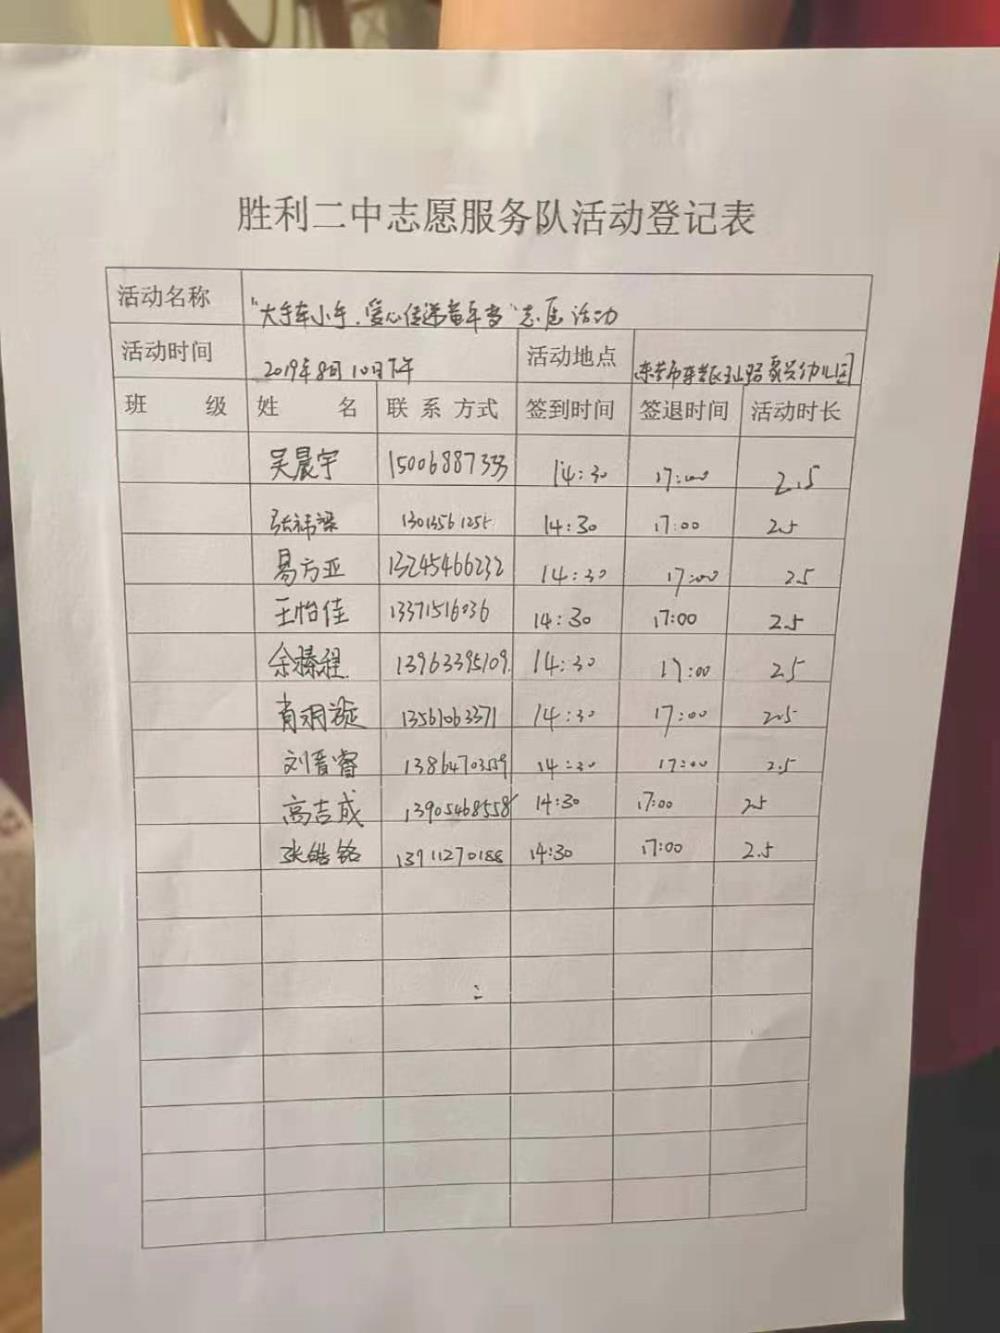 胜利二中志愿服务队活动登记表
活动名称 "大手牵小手,爱心传递嘉年华"志愿活动
活动时间 2019年8月10日下午 活动地点 东营市东营区 路 幼儿园
班 级 姓 名 联系方式 签到时间 签退时间 活动时长
吴晨宇 15006887333 14:30 17:00 2.5
张祎梁 14:30 17:00 2.5
易方亚 13245466232 14:30 17:00 2.5
王怡佳 13371516036 14:30 17:00 2.5
余臻程 13963395109 14:30 17:00 2.5
肖 13561063371 14:30 17:00 2.5
刘晋睿 14:30 17:00 2.5
高吉成 13905468558 14:30 17:00 2.5
张皓铭 13911270188 14:30 17:00 2.5